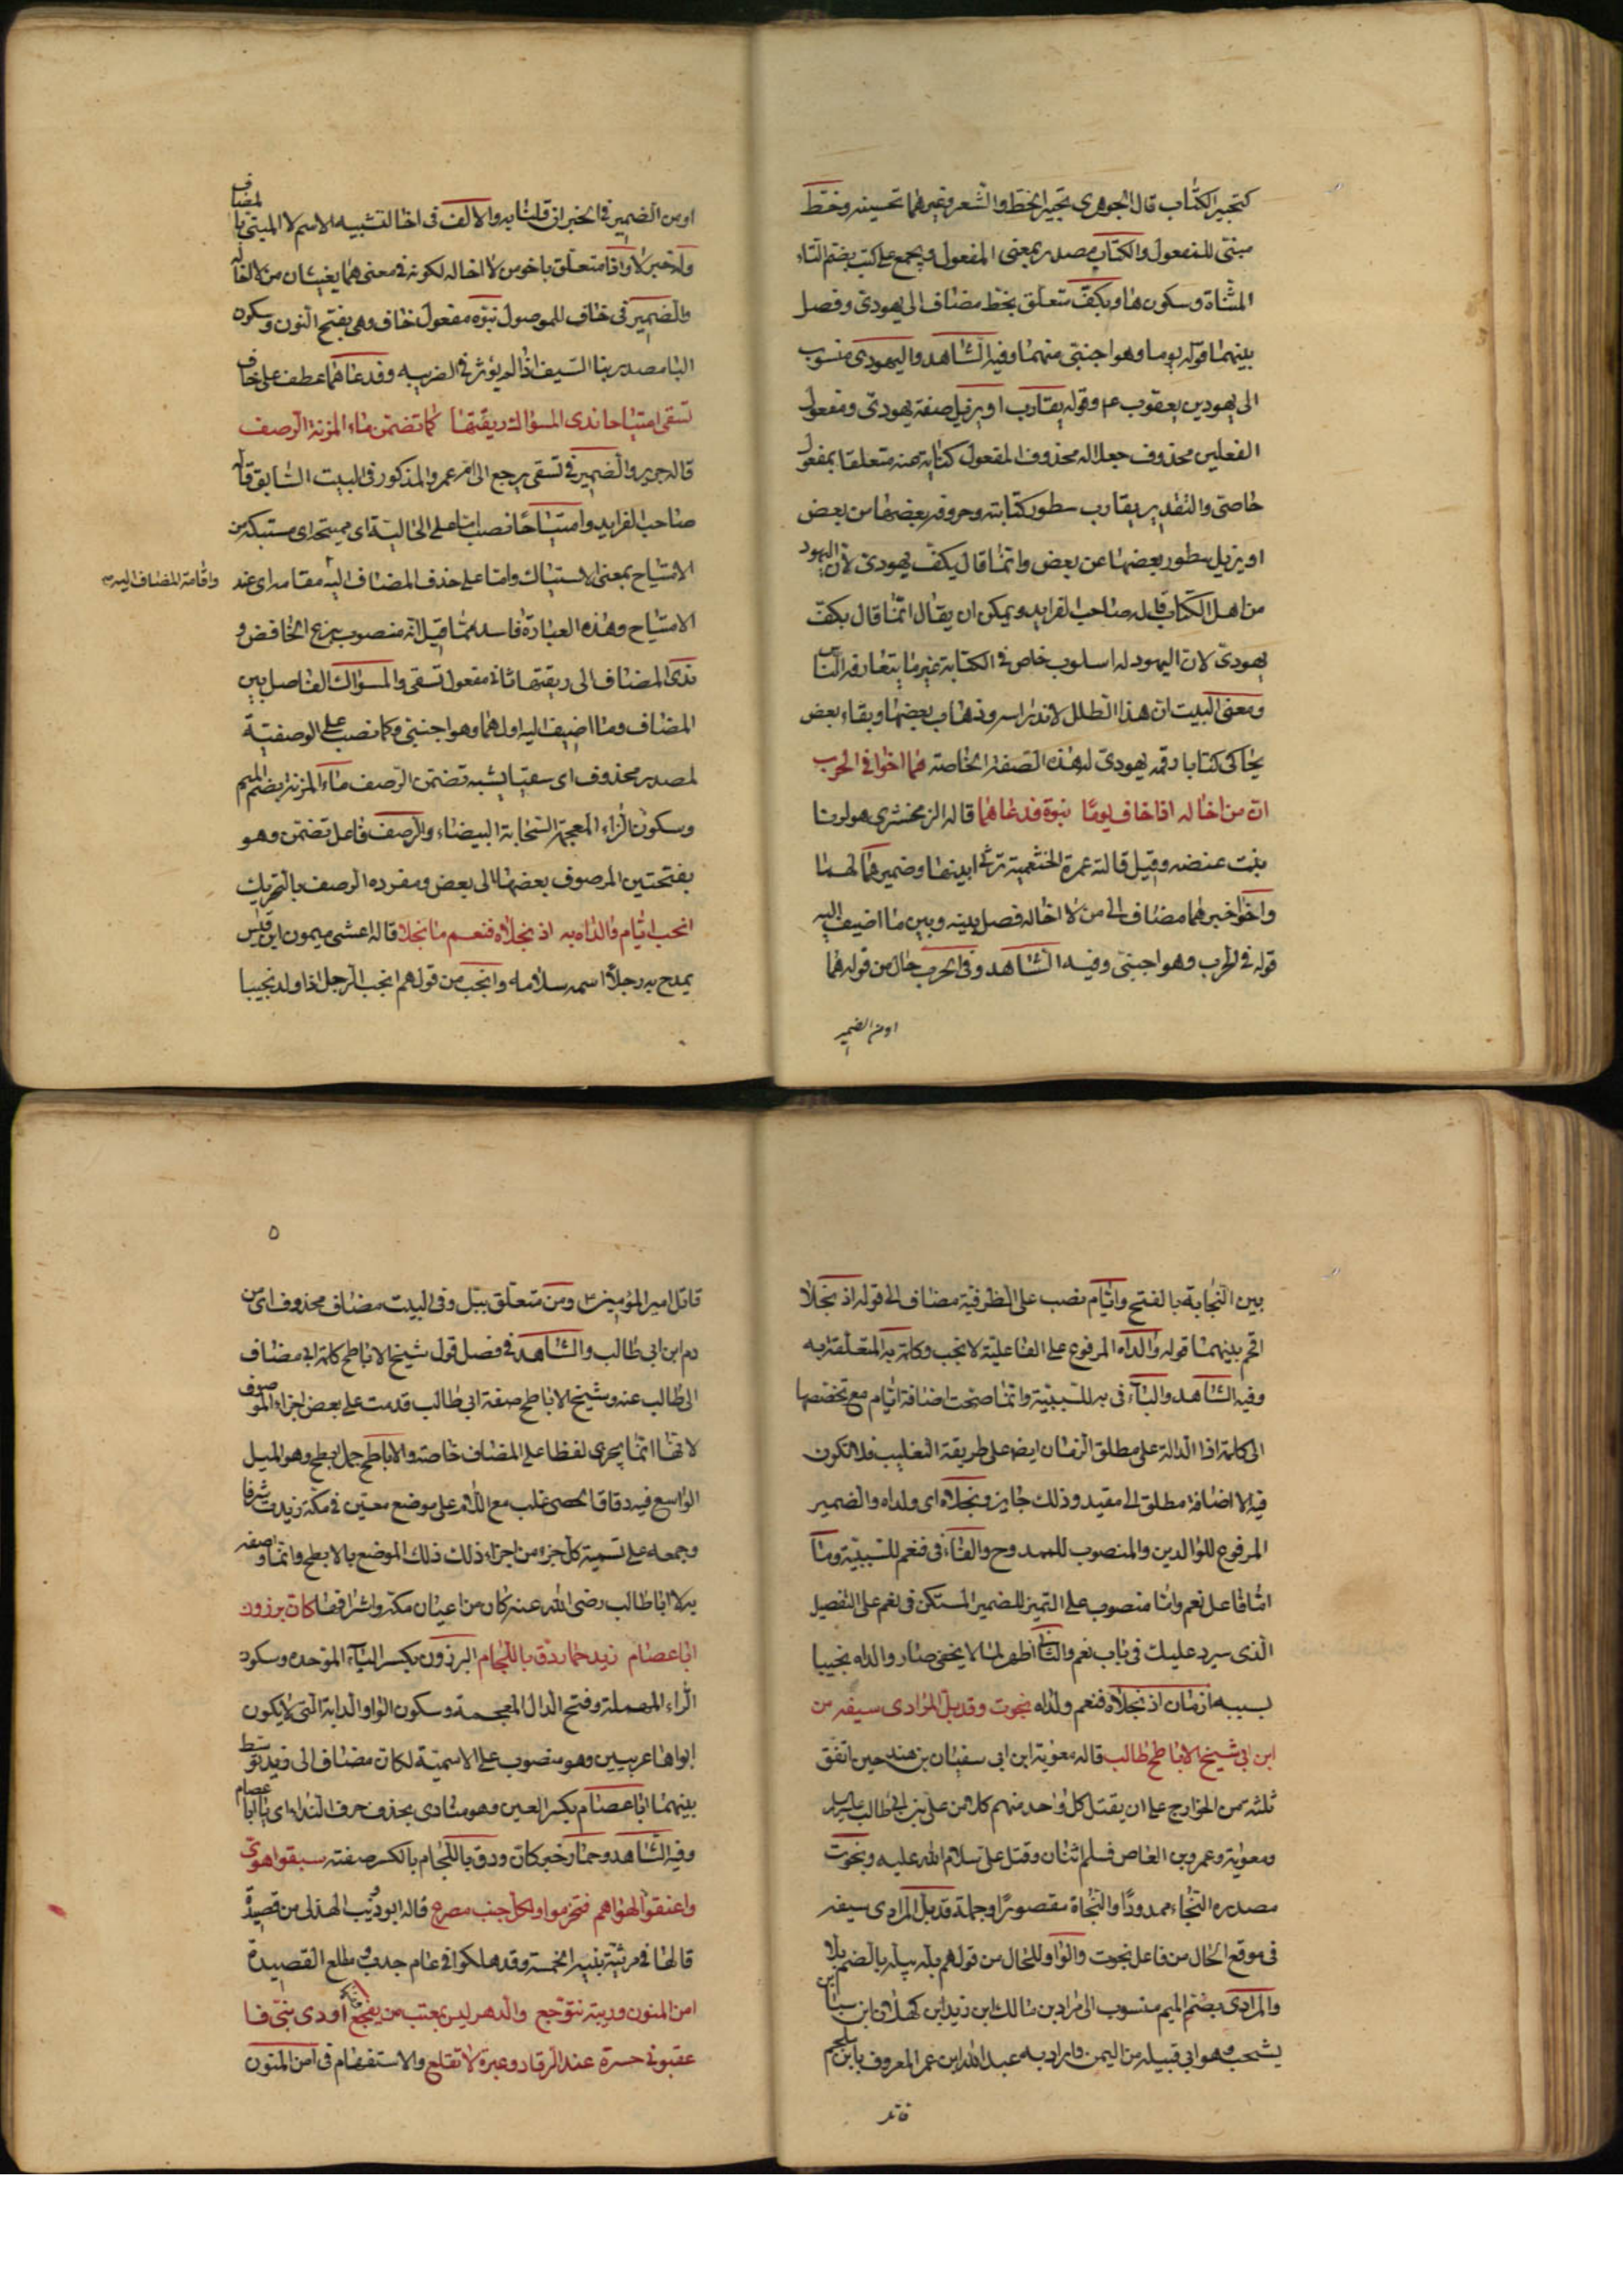 كتجبير الكتاب قال الجوهري تحبير الخط والشعر وغيرهما تحسينه وخط
مبنى للمفعول والكتاب مصدر بمعنى المفعول ويجمع على كتب بضم التاء
المثناة وسكونها وبكف متعلق بخط مضاف الى يهودى وفصل
بينهما قوله يوما وهو اجنبى منهما وفيه الشاهد واليهودى منسوب
الى يهود بن يعقوب ع م وقوله يقارب او يزيل صفة يهودى ومفعول
الفعلين محذوف جعلا له محذوف المفعول كتابة عنه متعلقا بمفعول
خاص والتقدير يقارب سطور كتابته وحروفه بعضها من بعض
او يزيل سطور بعضها عن بعض وانما قال بكف يهودى لان اليهود
من اهل الكتاب قاله صاحب الفرايد ويمكن ان يقال انما قال بكف
يهودى لان اليهود له اسلوب خاص فى الكتابة غير ما يتعارفه الناس
ومعنى البيت ان هذا الطلل لاندراسه وذهاب بعضها وبقاء بعض
يحاكى كتابا رقمه يهودى لهذه الصفة الخاصة هما اخوا فى الحرب
ان من لا اخا له اذا خاف يوما نبوة فدعاهما قاله الزمخشرى هو لدرنا
بنت عنضه وقيل قالته عمرة الخثعمية ترثى ابنيها وضمير هما لهما
واخوا خبر هما مضاف الى من لا اخا له فصل بينه وبين ما اضيف اليه
قوله فى الحرب وهو اجنبى وفيه الشاهد وفى الحرب حال من قوله هما
او من الضمير
او من الضمير فى الخبر ان قلنا به والالف فى اخا لتشبيه الاسم لا المبنى بالمضاف
وله خبر لا واذا متعلق باخو من لا اخا له لكونه فى معنى هما يغيثان من لا اخا له
والضمير فى خاف للموصول نبوه مفعول خاف وهى بفتح النون وسكون
البا مصدر نبا السيف اذا لم يؤثر فى الضريبه وفدعاهما عطف على خاف
تسقى امتياحا ندى المسواك ريقتها كما تضمن ماء المزنة الرصف
قاله جرير والضمير فى تسقى يرجع الى ام عمرو المذكور فى البيت السابق قاله
صاحب الفرايد وامتياحا نصب اما على الحالية اى مميتحه اى مستبكه من
الامتياح بمعنى الاستياك واما على حذف المضاف اليه مقامه اى عند
واقامة المضاف اليه
الامتياح وهذه العبادة فاسد كما قيل انه منصوب بنزع الخافض و
ندى المضاف الى ريقتها ثانى مفعول تسقى والمسواك الفاصل بين
المضاف وما اضيف اليه اولهما وهو اجنبى وكما نصب على الوصفية
لمصدر محذوف اى سقيا يشبه تضمن الرصف ماء المزنة بضم الميم
وسكون الزاء المعجمة السحابة البيضاء والرصف فاعل تضمن وهو
بفتحتين المرصوف بعضها الى بعض ومفرده الرصف بالتحريك
انجب ايام والداه به اذ نجلاه فنعم ما نجلا قاله اعشى ميمون ابن قيس
يمدح به رجلا اسمه سلامه وانجب من قولهم انجب الرجل اذا ولد نجيبا
بين النجابة بالفتح وايام نصب على الظرفية مضاف الى قوله اذ نجلاه
اقحم بينهما قوله والداه المرفوع على الفاعلية لانجب وكلمة به المتعلقة به
وفيه الشاهد والباء فى به للسببية وانما صحت اضافة ايام مع تخصصها
الى كلمة اذ الدالة على مطلق الزمان ايضا على طريقة التغليب فلا تكون
فيه الا اضافة مطلق الى مقيد وذلك جايز ونجلاه اى ولداه والضمير
المرفوع للوالدين والمنصوب للممدوح والفاء فى فنعم للسببية وما
اما فاعل نعم واما منصوب على التميز للضمير المستكن فى نعم على التفصيل
الذى سيرد عليك فى باب نعم والثانى اظهر لما لا يخفى صار والداه نجيبا
بسببه ازمان اذ نجلاه فنعم ولداه نجوت وقد بل المرادى سيفه من
ابن ابى شيخ الاباطح طالب قاله معوية ابن ابى سفيان بن هند حين اتفق
ثلثه من الخوارج على ان يقتل كل واحد منهم كلا من على بن ابى طالب
ومعوية وعمرو بن العاص فسلم اثنان وقتل على سلام الله عليه ونجوت
مصدره النجاء ممدودا والنجاة مقصورا وجملة قد بل المرادى سيفه
فى موقع الحال من فاعل نجوت والواو للحال من قولهم بله يبله بالضم بلا
والمرادى بضم الميم منسوب الى مراد بن مالك ابن زيد ابن كهلان ابن سبا ابن
يشحب وهو ابى قبيله من اليمن واراد به عبد الله ابن عمر المعروف بابن ملجم
قاتل
٥
قاتل امير المؤمنين ع ومن متعلق ببل وفى البيت مضاف محذوف اى من
دم ابن ابى طالب والشاهد فى فصل قول شيخ الاباطح كلمة ابى مضاف
الى طالب عنه وشيخ الاباطح صفة ابى طالب قدمت على بعض اجزاء الموصوف
لانها انما يجرى لفظا على المضاف خاصة والاباطح جمل بطح وهو الميل
الواسع فيه دقاق الحصى غلب مع اللام على موضع معين فى مكة زيدت شرفا
وجمعه على تسمية كل جزء من اجزاء ذلك ذلك الموضع بالابطح وانما وصفه
به لا ابا طالب رضى الله عنه كان من اعيان مكة واشرافها كان برذون
ابا عصام زيد حمار دق باللجام البرذون بكسر الباء الموحده وسكون
الراء المهملة وفتح الدال المعجمة وسكون الواو الدابة التى لا يكون
ابواها عربيين وهو منصوب على الاسمية لكان مضاف الى زيد توسط
بينهما ابا عصام بكسر العين وهو منادى بحذف حرف النداء اى يا ابا عصام
وفيه الشاهد وحمار خبر كان ودق باللجام بالكسر صفته سبقوا هوى
واعنقوا لهواهم فتخرموا ولكل جنب مصرع قاله ابو ذويب الهذلى من قصيدة
قالها فى مرثية بنيه الخمسة وقد هلكوا فى عام جدوب مطلع القصيدة
امن المنون وريبه تتوجع والدهر ليس بمعتب من يفجع اودى بنى فا
عقبونى حسرة عند الرقاد وعبرة لا تقلع والاستفهام فى امن المنون